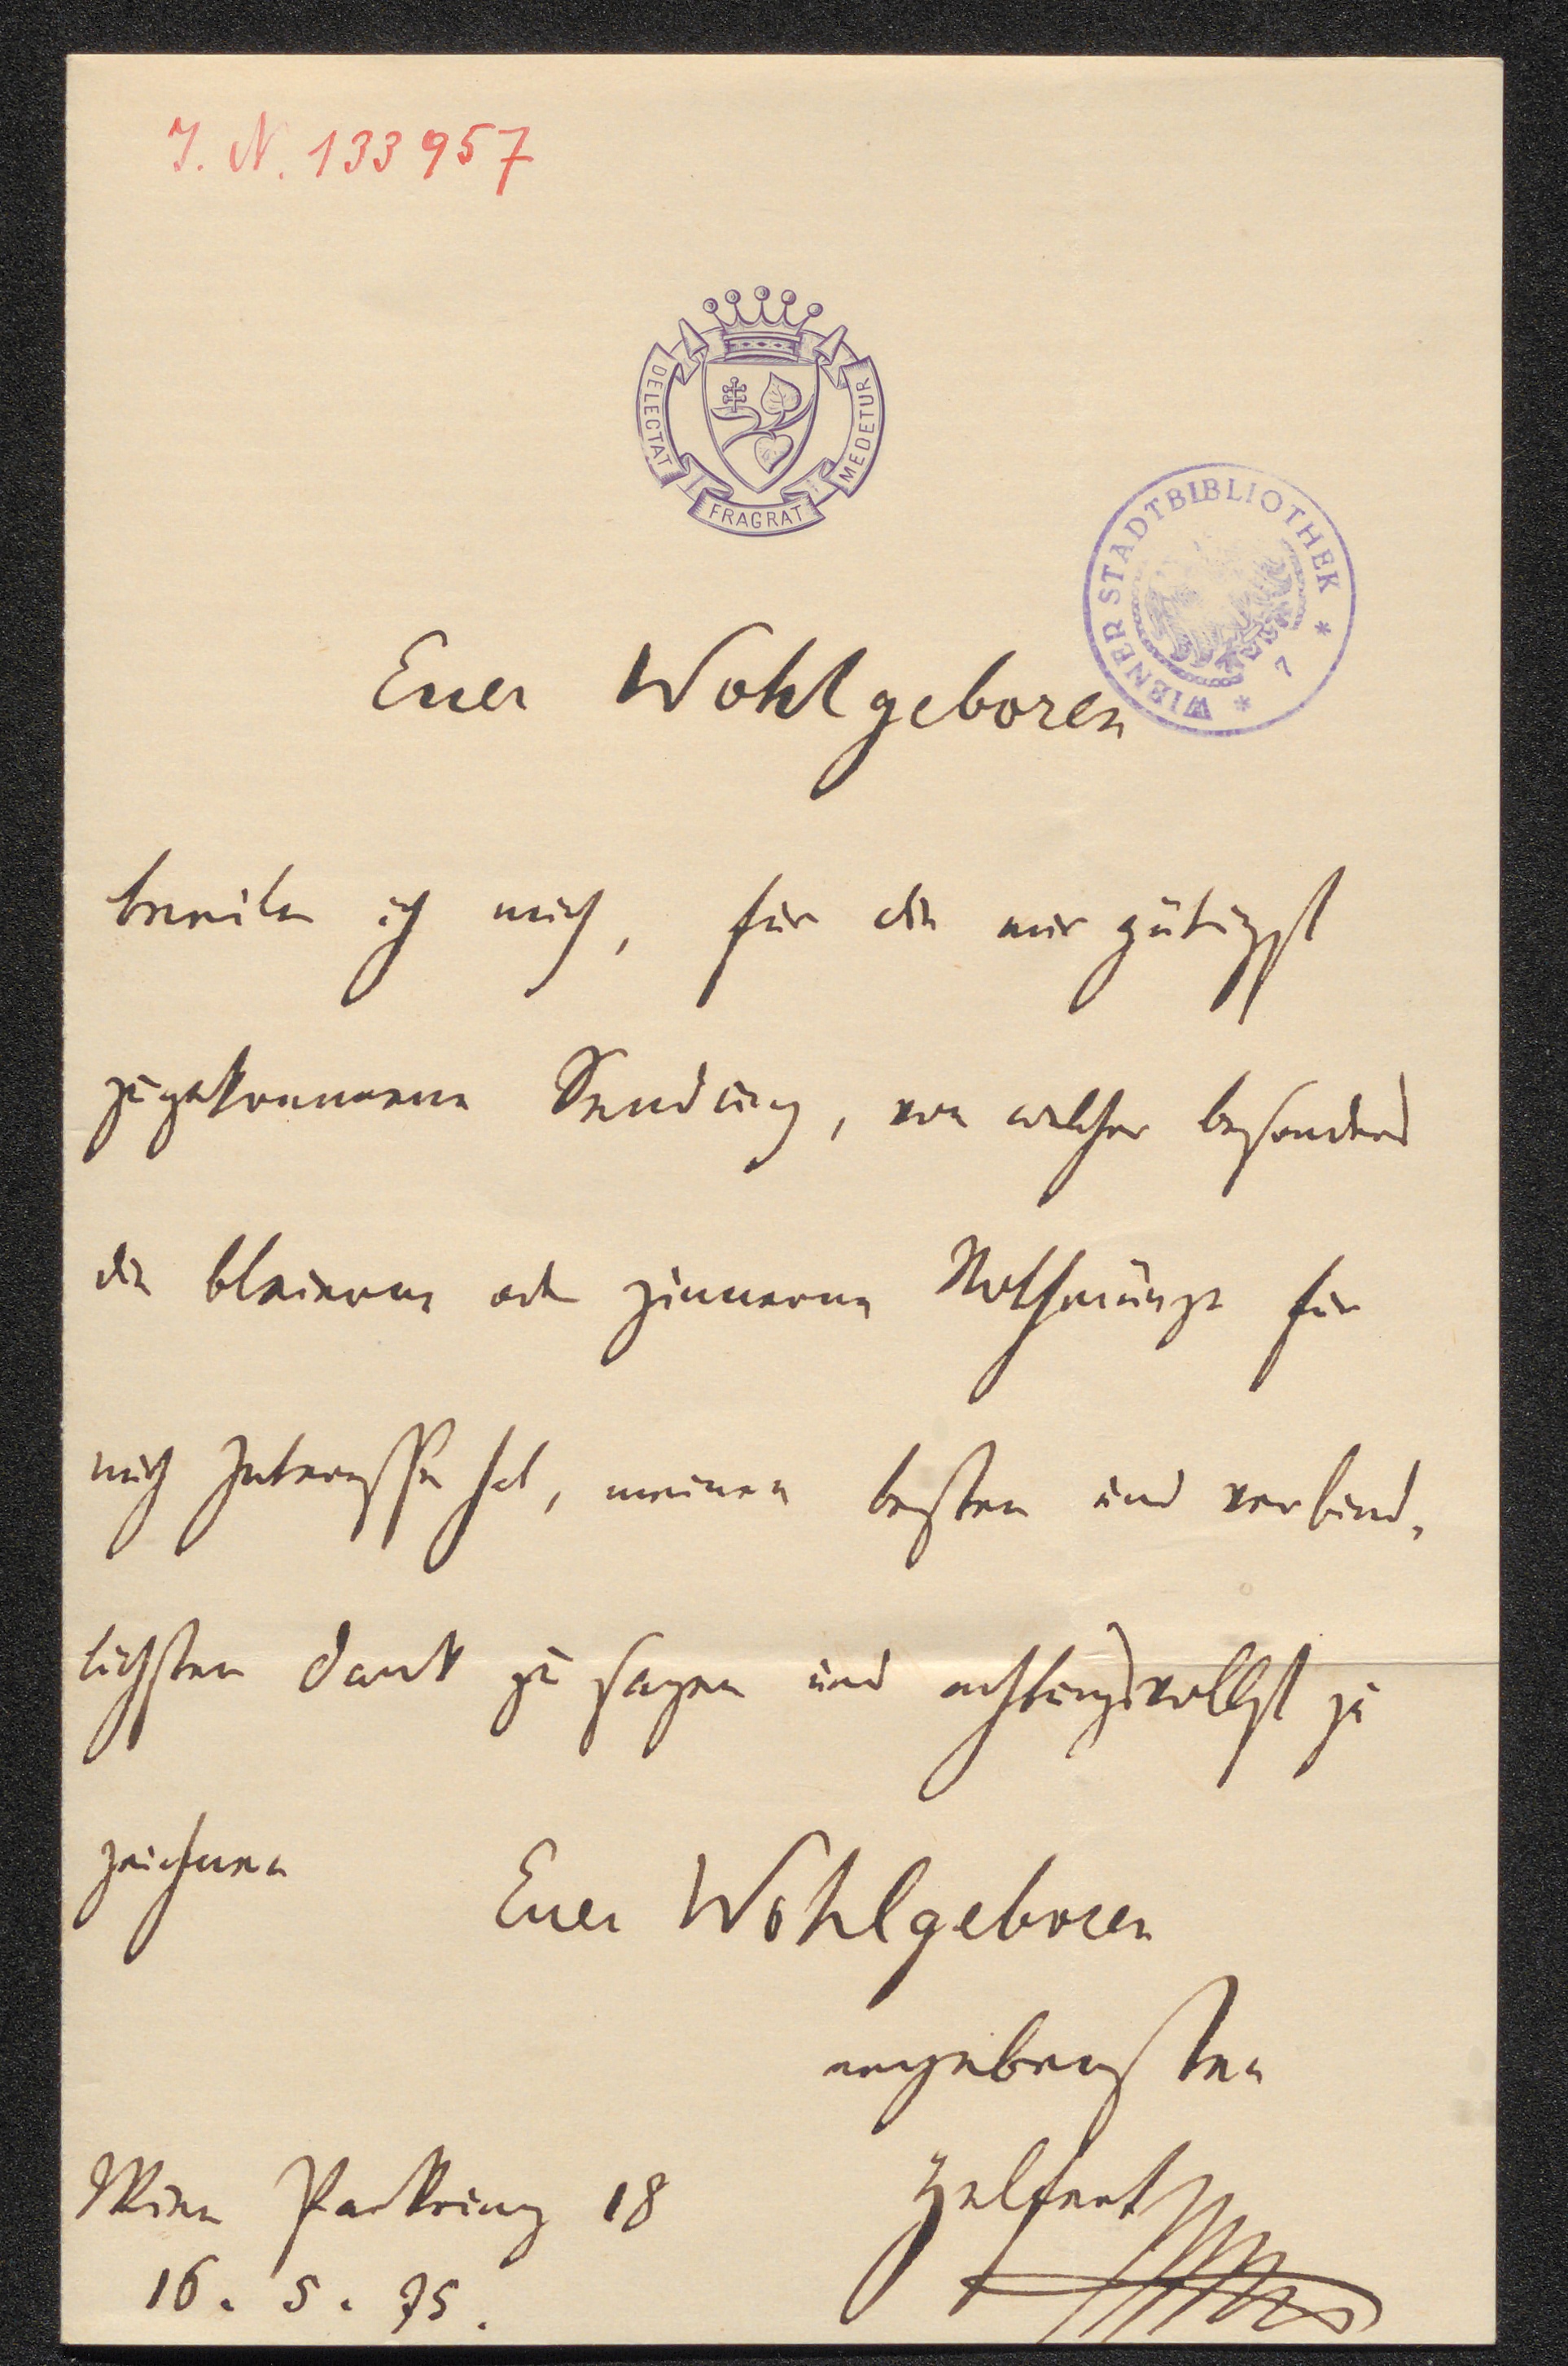 J. N. 133957
DELECTAT FRAGRAT MEDETUR
WIENER STADTBIBLIOTHEK * 7 *
Euer Wohlgeboren
beeile ich mich, für die mir gütigst
zugekommene Sendung, von welcher besonders
die bleierne oder zinnerne Nothmünze für
mich Interesse hat, meinen besten und verbind-
lichsten Dank zu sagen und achtungsvollst zu
zeichnen
Euer Wohlgeboren
ergebensten
Helfert
Wien Parkring 18
16. 5. 75.